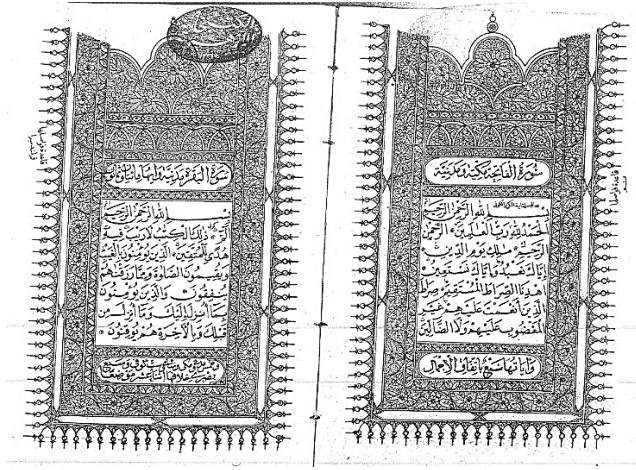 سُورَةُ الْفَاتِحَةِ مَكِّيَّةٌ وَمَدَنِيَّةٌ
بِسْمِ اللهِ الرَّحْمٰنِ الرَّحِيمِ
الْحَمْدُ لِلّٰهِ رَبِّ الْعَالَمِينَ الرَّحْمٰنِ
الرَّحِيمِ مٰلِكِ يَوْمِ الدِّينِ
إِيَّاكَ نَعْبُدُ وَإِيَّاكَ نَسْتَعِينُ
اهْدِنَا الصِّرَاطَ الْمُسْتَقِيمَ صِرَاطَ
الَّذِينَ أَنْعَمْتَ عَلَيْهِمْ غَيْرِ
الْمَغْضُوبِ عَلَيْهِمْ وَلَا الضَّالِّينَ
وَآيَاتُهَا سَبْعٌ بِاتِّفَاقِ الْإِجْمَالِ
سُورَةُ الْبَقَرَةِ مَدَنِيَّةٌ
بِسْمِ اللهِ الرَّحْمٰنِ الرَّحِيمِ
الٓمٓ ذٰلِكَ الْكِتٰبُ لَا رَيْبَ فِيهِ
هُدًى لِلْمُتَّقِينَ الَّذِينَ يُؤْمِنُونَ بِالْغَيْبِ
وَيُقِيمُونَ الصَّلٰوةَ وَمِمَّا رَزَقْنٰهُمْ
يُنْفِقُونَ وَالَّذِينَ يُؤْمِنُونَ
بِمَا أُنْزِلَ إِلَيْكَ وَمَا أُنْزِلَ مِنْ
قَبْلِكَ وَبِالْآخِرَةِ هُمْ يُوقِنُونَ